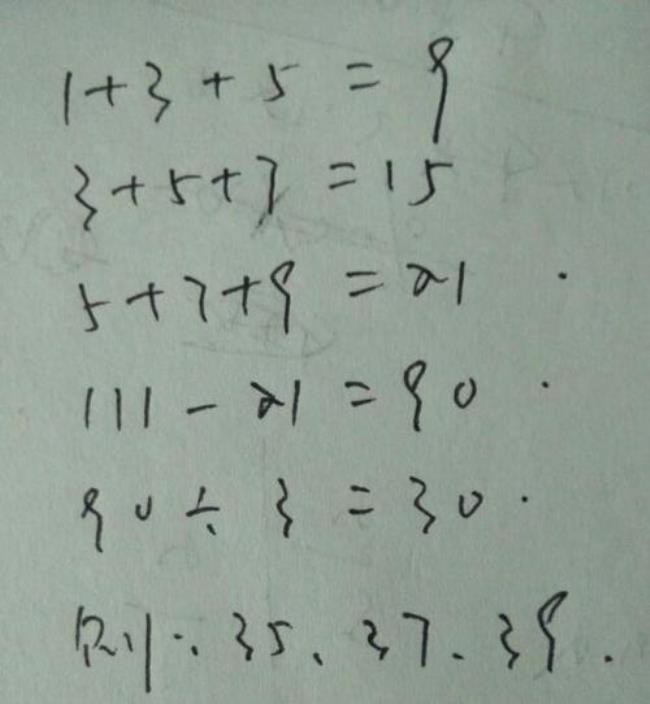 1+3+5=9
3+5+7=15
5+7+9=21
111-21=90
90÷3=30.
则:35、37、39.